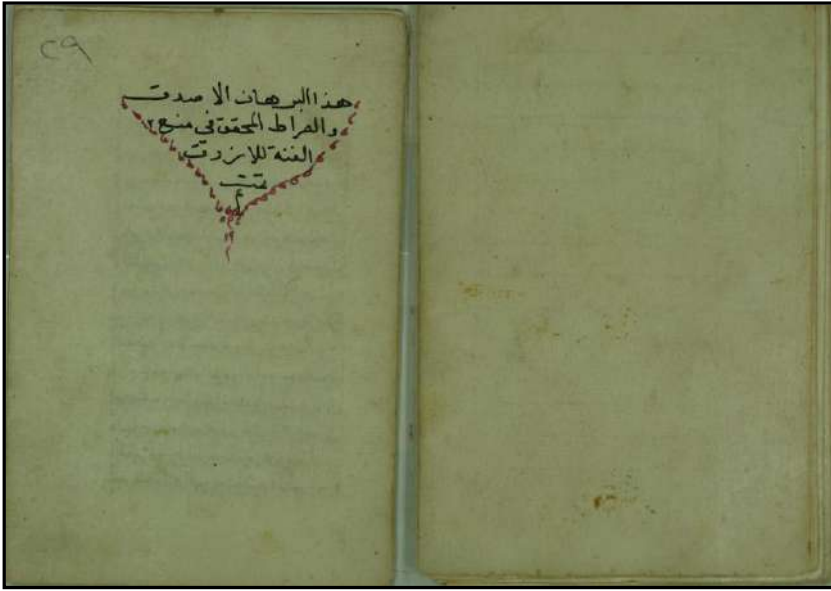 ٢٩
هذا البرهان الاصدق
والصراط المحقق فى منع
الغنة للازرق
تمت
م